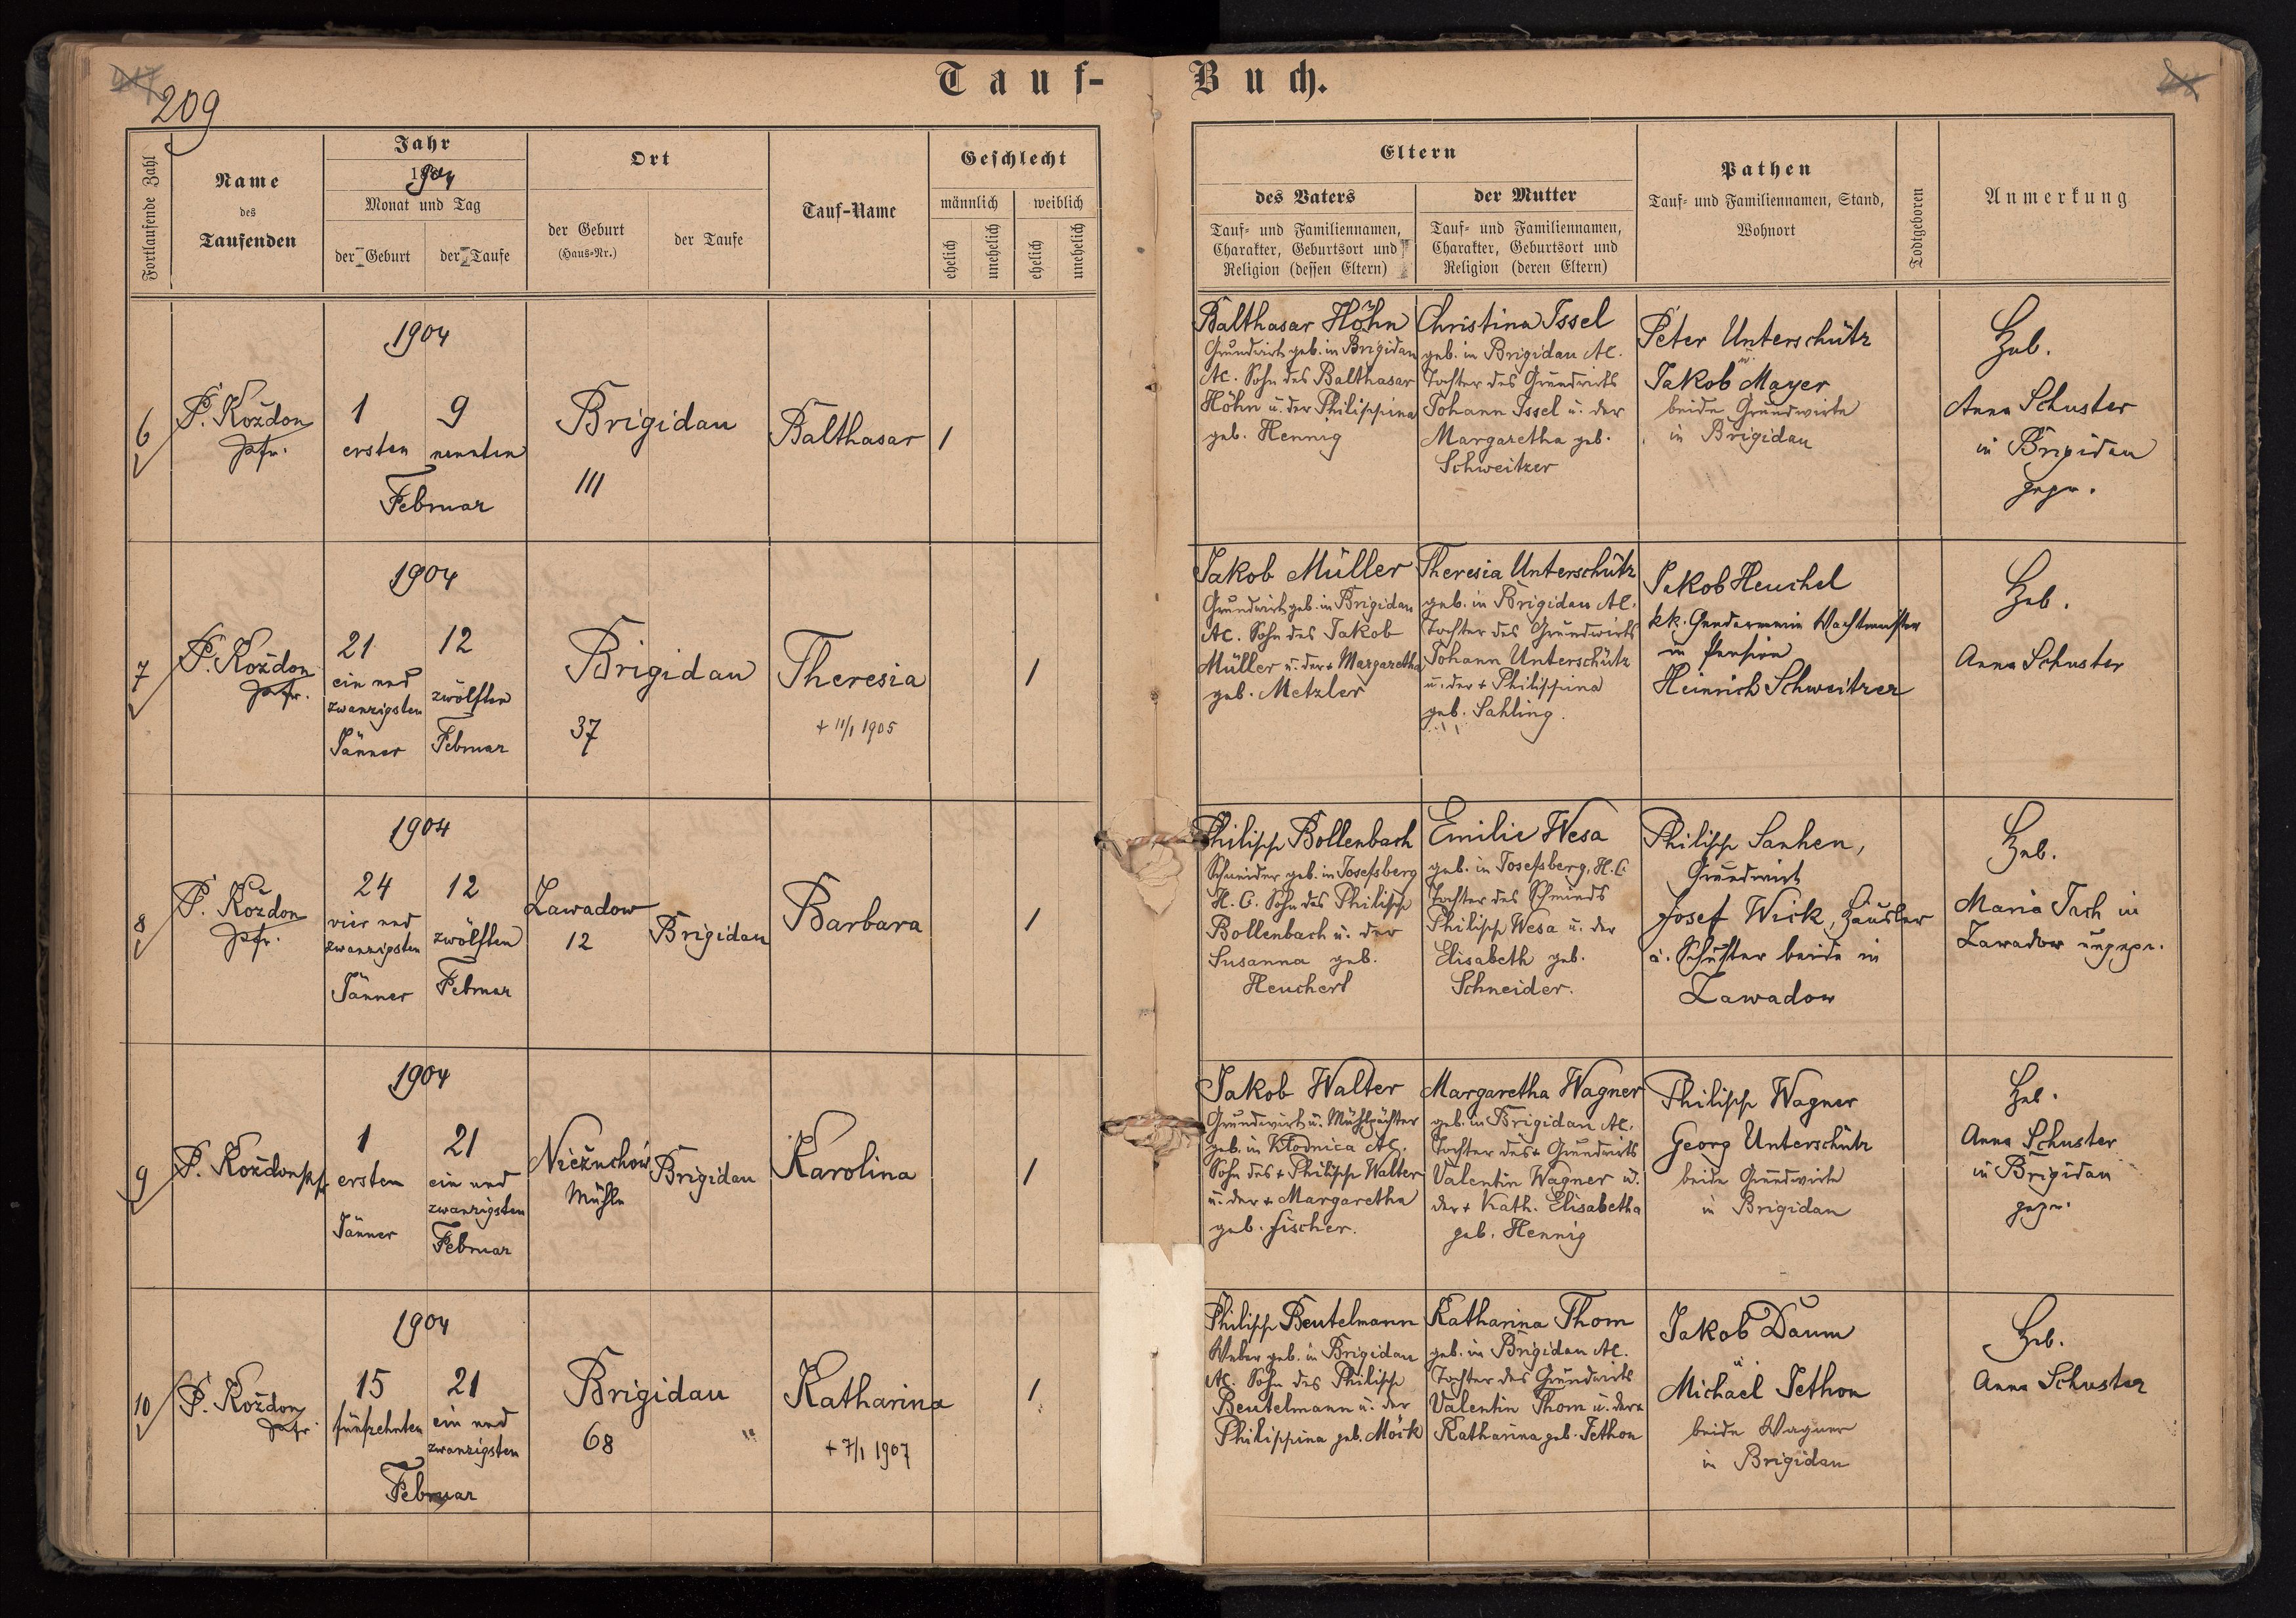 209
Tauf-Buch.
Fortlaufende Zahl
Name
des
Taufenden
Jahr
1904
Monat und Tag
der Geburt
der Taufe
Ort
der Geburt
(Haus-Nr.)
der Taufe
Tauf-Name
Geschlecht
männlich
weiblich
ehelich
unehelich
ehelich
unehelich
Eltern
des Vaters
Tauf- und Familiennamen,
Charakter, Geburtsort und
Religion (dessen Eltern)
der Mutter
Tauf- und Familiennamen,
Charakter, Geburtsort und
Religion (deren Eltern)
Pathen
Tauf- und Familiennamen, Stand,
Wohnort
Todtgeboren
Anmerkung
6
P. Koždon
Pfr.
1904
1
ersten
9
neunten
Februar
Brigidau
111
Balthasar
1
Balthasar Höhn
Grundwirt geb. in Brigidau
AC. Sohn des Balthasar
Höhn u. der Philippina
geb. Hennig
Christina Issel
geb. in Brigidau AC.
Tochter des Grundwirts
Johann Issel u. der
Margaretha geb.
Schweitzer
Peter Unterschütz
u.
Jakob Mayer
beide Grundwirte
in Brigidau
Heb.
Anna Schuster
in Brigidau
gepr.
7
P. Koždon
Pfr.
1904
21
ein und
zwanzigsten
Jänner
12
zwölften
Februar
Brigidau
37
Theresia
+ 11/1 1905
1
Jakob Müller
Grundwirt geb. in Brigidau
AC. Sohn des Jakob
Müller u. der + Margaretha
geb. Metzler
Theresia Unterschütz
geb. in Brigidau AC.
Tochter des Grundwirts
Johann Unterschütz
u. der + Philippina
geb. Sahling.
Jakob Heuchel
kk. Gendarmerie Wachtmeister
in Pension
Heinrich Schweitzer
Heb.
Anna Schuster
8
P. Koždon
Pfr.
1904
24
vier und
zwanzigsten
Jänner
12
zwölften
Februar
Zawadow
12
Brigidau
Barbara
1
Philipp Bollenbach
Schneider geb. in Josefsberg
H. C. Sohn des Philipp
Bollenbach u. der
Susanna geb.
Heuchert
Emilie Wesa
geb. in Josefsberg, H. C.
Tochter des Schmieds
Philipp Wesa u. der
Elisabeth geb.
Schneider.
Philipp Sanhen,
Grundwirt
Josef Wick, Häusler
u. Schuster beide in
Zawadow
Heb.
Maria Tach in
Zawadow ungepr.
9
P. Koždon Pfr
1904
1
ersten
Jänner
21
ein und
zwanzigsten
Februar
Niežuchów
Mühle
Brigidau
Karolina
1
Jakob Walter
Grundwirt u. Mühlpächter
geb. in Kłodnica AC.
Sohn des + Philipp Walter
u. der + Margaretha
geb. Fischer.
Margaretha Wagner
geb. in Brigidau AC.
Tochter des + Grundwirts
Valentin Wagner u.
der + Kath. Elisabetha
geb. Hennig
Philipp Wagner
Georg Unterschütz
beide Grundwirte
in Brigidau
Heb.
Anna Schuster
in Brigidau
gepr.
10
P. Koždon
Pfr
1904
15
fünfzehnten
21
ein und
zwanzigsten
Februar
Brigidau
68
"
Katharina
+ 7/1 1907
1
Philipp Beutelmann
Weber geb. in Brigidau
AC. Sohn des Philipp
Beutelmann u. der
Philippina geb. Möck
Katharina Thom
geb. in Brigidau AC.
Tochter des Grundwirts
Valentin Thom u. der +
Katharina geb. Jethon
Jakob Daum
u
Michael Jethon
beide Wagner
in Brigidau
Heb.
Anna Schuster